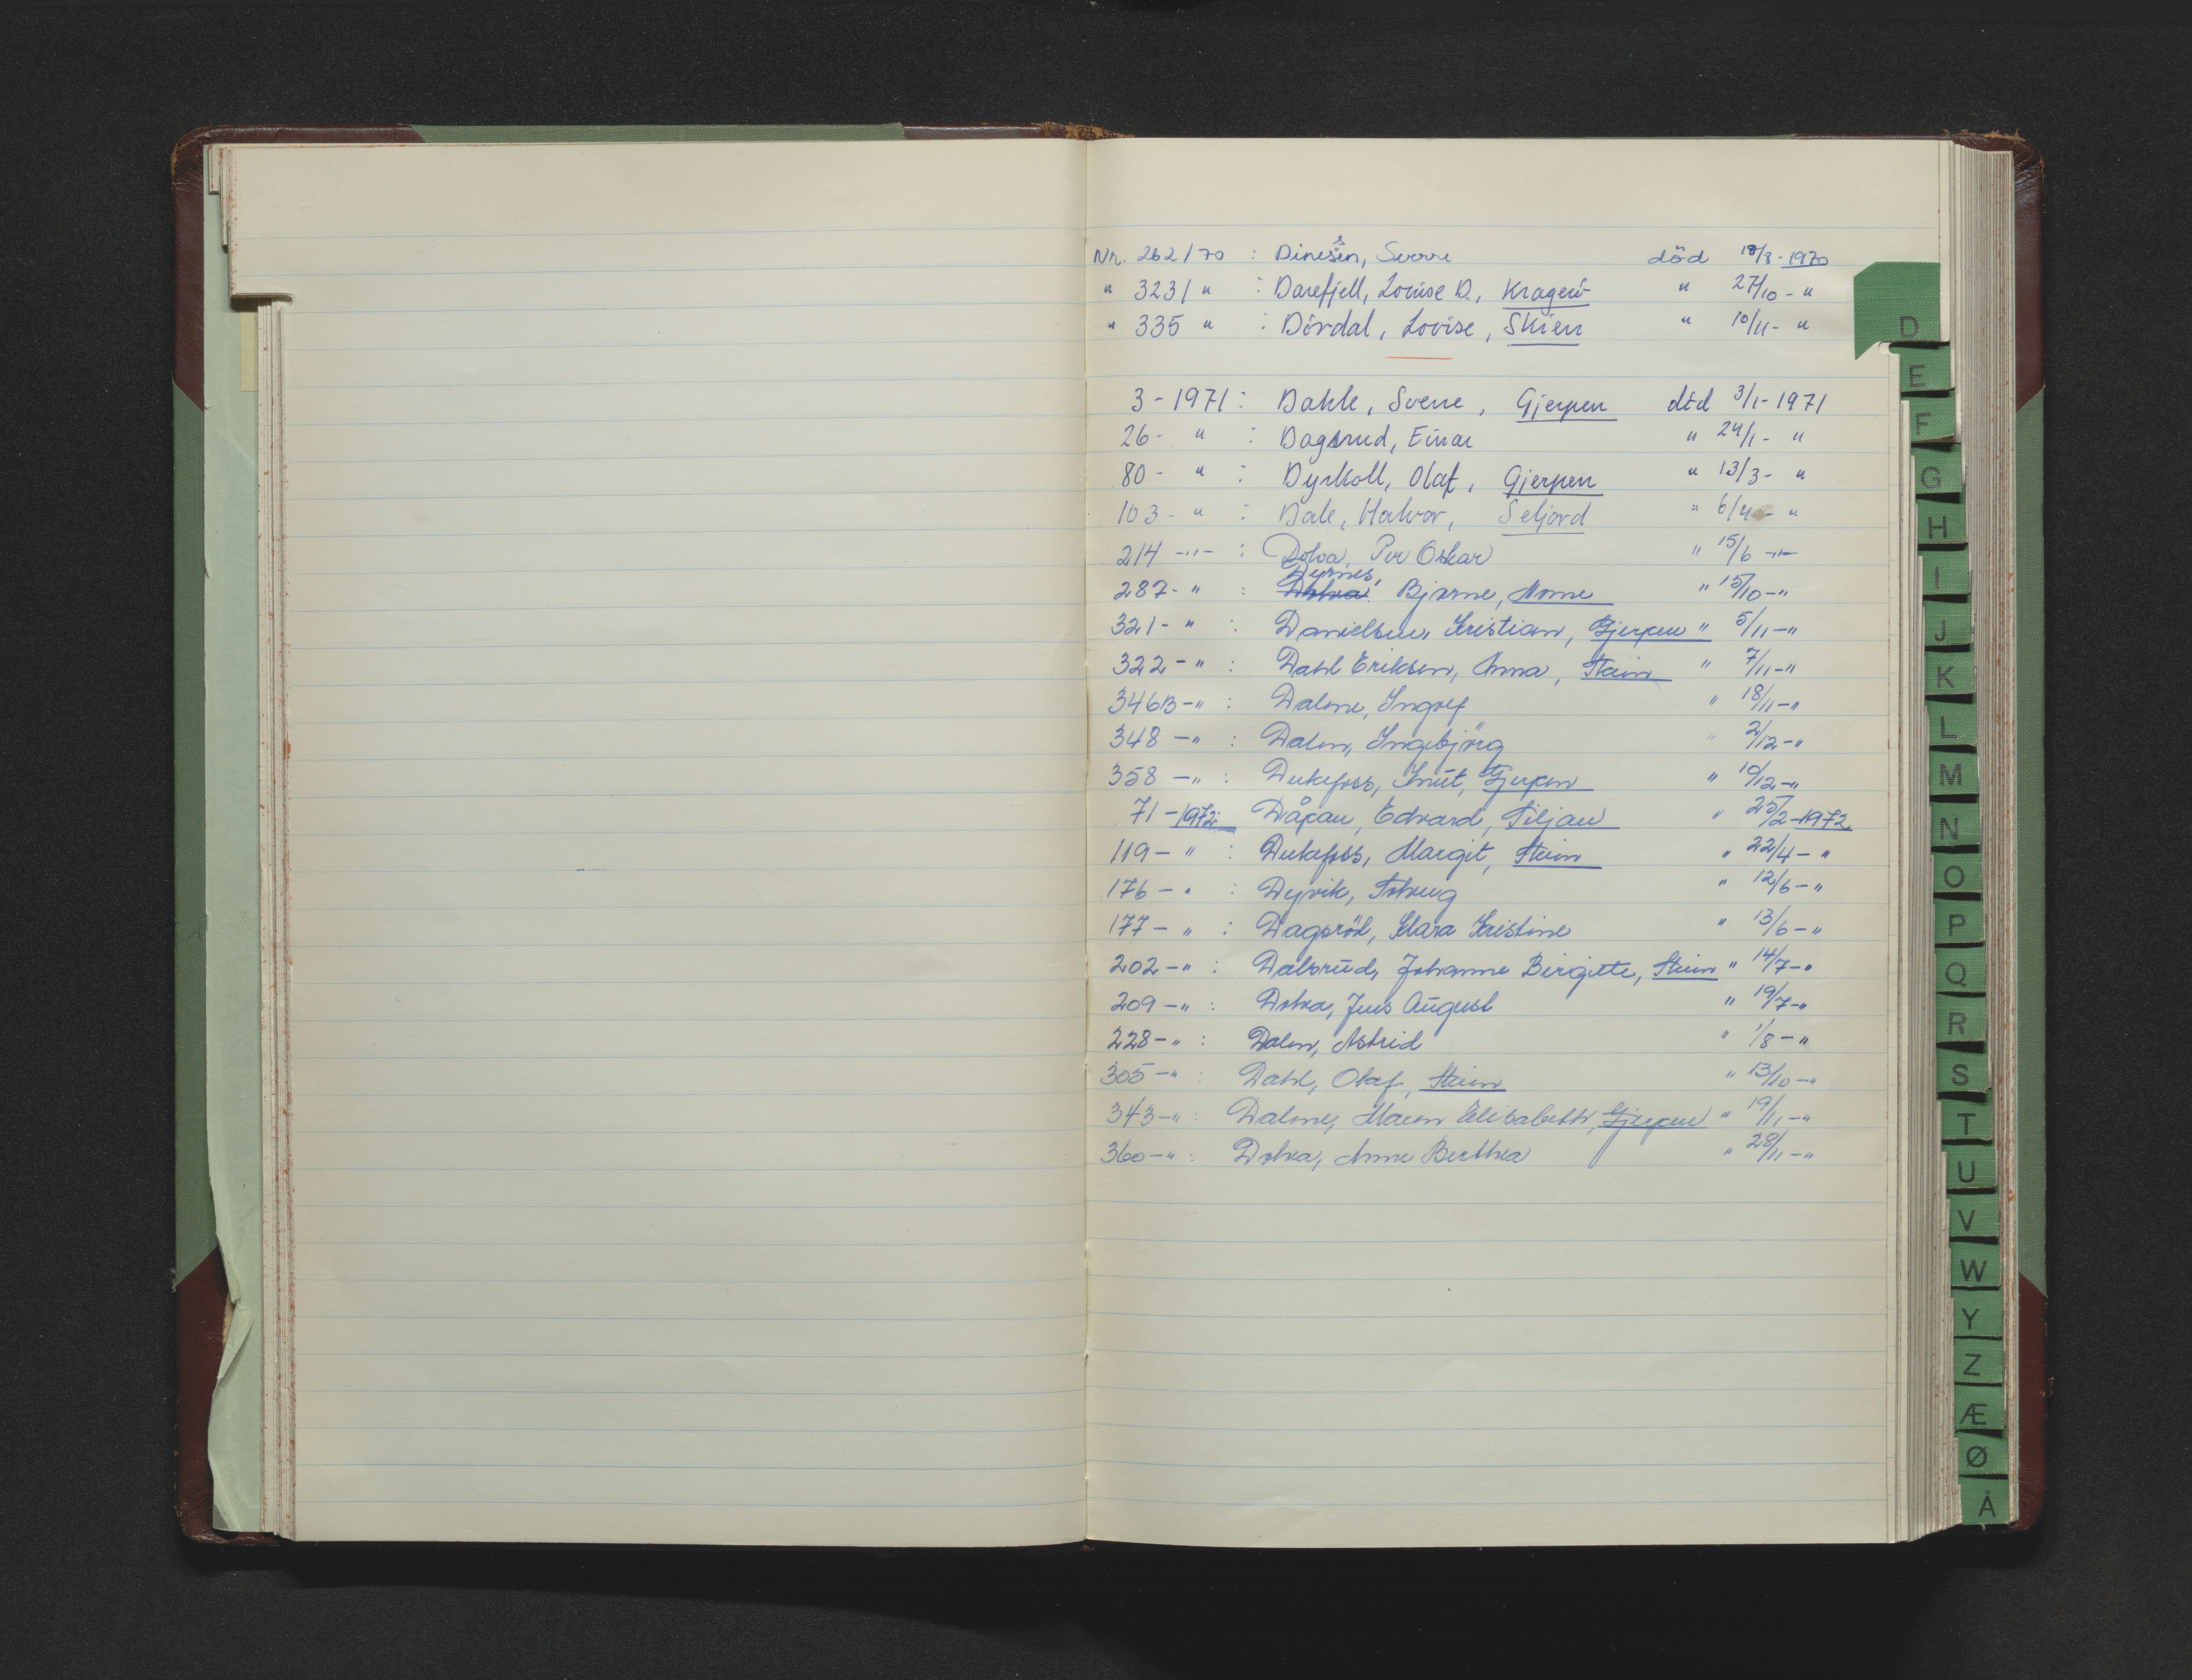 Nr. 262/70 : Dinessen, Sverre död 18/8-1970
" 323/ " : Darefjell, Louise D., Kragerö " 27/10 - "
" 335 " : Dördal, Lovise, Skien " 10/11 - "
3-1971: Dahle, Sverre, Gjerpen död 3/1-1971
26- " : Dagsrud, Einar " 24/1 - "
80- " : Dyrkoll, Olaf, Gjerpen " 13/3- "
103- " : Dale, Halvor, Seljord " 6/4 - "
214 -"- : Dolva, Per Oskar " 15/6 -"-
Dyrnes,
287- " : Dolva Bjarne, Nome " 15/10-"
321- " : Danielsen, Kristian, Gjerpen " 5/11-"
322-" : Dahl Eriksen, Anna, Skien " 7/11-"
346B-" : Dalene, Ingolf " 18/11-"
348 -" : Dalen, Ingebjörg " 2/12-"
358 -" : Dukefoss, Knut, Gjerpen " 10/12-"
71-1972: Dåpan, Edvard, Siljan " 25/2-1972
119- " : Dukefoss, Margit, Skien " 22/4-"
176- " : Dyvik, Solveig " 12/6-"
177- " : Dagsröd, Klara Kristine " 13/6-"
202-" : Dalsrud, Johanne Birgitte, Skien " 14/7-"
209-" : Dolva, Jens August " 19/7-"
228-" : Dalen, Astrid " 1/8-"
305-" : Dahl, Olaf, Skien " 13/10-"
343-" : Dalene, Maren Elisabeth, Gjerpen " 19/11-"
360-" : Dolva, Anne Berthea " 28/11-"
D
E
F
G
H
I
J
K
L
M
N
O
P
Q
R
S
T
U
V
W
Y
Z
Æ
Ø
Å